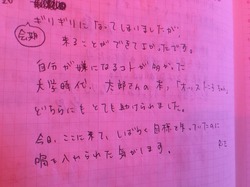 ギリギリに なってしまいましたが
会期
来ることができてよかったです。
自分が嫌になるコトが多かった
大学時代、太郎さんの本、
どちらにもとても助けられました。
今日、ここに来て、しばらく目標を失っていたのに
喝を入れられた気がします。